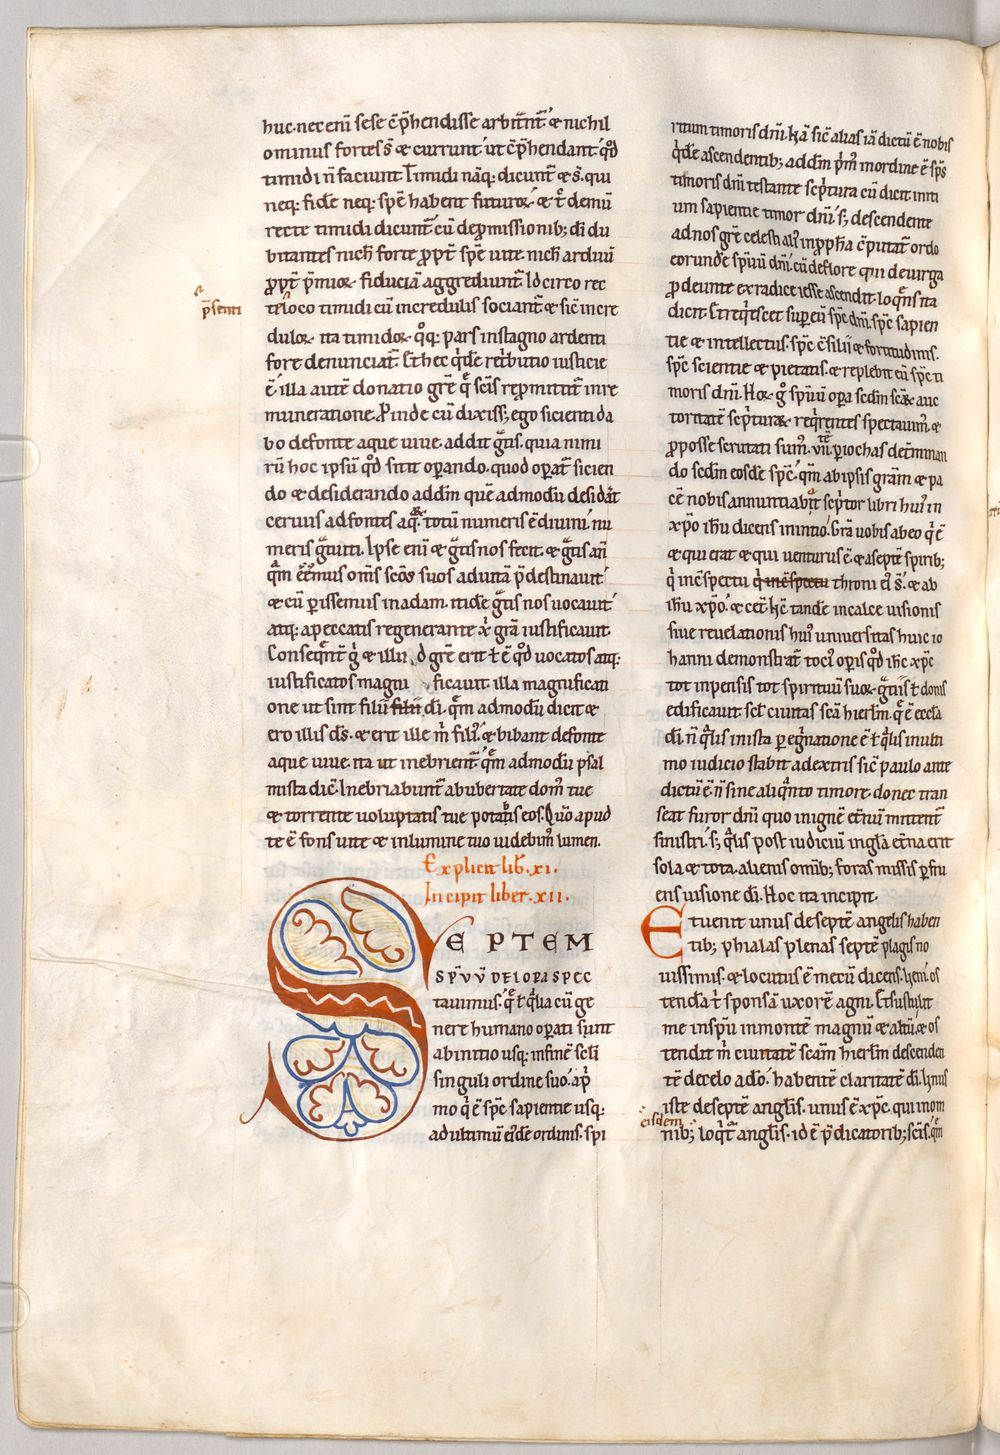 huc. nec eni sese c̄p̄hendisse arbit̄nt᷑. & nichil
ominus fortes s̄ & currunt ut c̄p̄hendant. q̊d
timidi n̄ faciunt. Timidi nāq; dicunt᷑ & s̄. qui
neq; fidē neq; spē habent futuroꝝ. & t̄ demū
recte timidi dicunt᷑ cū de p̄missionib; di du
bitantes nich̄ forte ꝓpt̄ spē uite. nich̄ arduū
ꝓpt̄ p̄mioꝝ fiduciā aggrediunt᷑. Idcirco rec
te loco timidi cū incredulis sociant᷑ & sic̄ incre
p̄senti
duloꝝ. ita timidoꝝ q̊q; pars in stagno ardenti
fore denunciat᷑. Et hec q̇dē ret̄butio iusticie
ē. illa autē donatio grē q̄ scīs rep̄mittit᷑ in re
muneratione. Proinde cū dixiss; ego sicienti da
bo de fonte aque uiue. addit g̊tis. quia nimi
rū hoc ipsū q̊d sitit opando. quod opat᷑ sicien
do & desiderando. addm quē admodū desidat
ceruus ad fontes aq̄ꝝ. totū numeris ē diuini. nu
meris g̊tuiti. Ipse eni & g̊tis nos fecit. & g̊tis an
q̄m eēmus om̄s scōs suos ad uitā p̄destinauit.
& cū perissemus in adam. itidē g̊tis nos uocauit.
atq; a peccatis regenerante x̄ grā iustificauit.
Conseq̄nt᷑ g̊ & illud grē erit t̄ ē q̊d uocatos atq;
iustificatos magnificauit. illa magnificati
one ut sint filii filii di. q̄m admodū dicit &
ero illis ds. & erit ille m̄ fili᷒. & bibant de fonte
aque uiue. ita ut inebrient᷑. q̄m admodū psal
mista dic̄. Inebriabunt᷑ ab ubertate dom᷒ tue
& torrente uoluptatis tue potabis eos. Qm̄ apud
te ē fons uite & in lumine tuo uidebim᷒ lumen.
Explicit lib̄. xi.
Incipit liber. xii.
SEPTEM
SPV̄V̄ DEI OPA SPEC
tauimus. q̄ t̄ q̄lia cū ge
nere humano opati sunt
ab initio usq; in finē scli
singuli ordine suo. a p̄
mo q̇ ē spc̄ sapientie usq;
ad ultimū ei᷒dē ordinis. spi
ritum timoris dn̄i. Hā sic̄ alias iā dictū ē nobis
q̇dē ascendentib; addm p̄m᷒ in ordine ē sp̄s
timoris dn̄i testante sc̄ptura cū dicit. initi
um sapientie timor dn̄i. s; descendente
ad nos grē celestis alt᷒ in ꝓph̄a c̄putat᷑ ordo
eorundē spūū dn̄i. cū de flore qui de uirga
ꝓdeunte ex radice iesse ascendit. loq̄ns ita
dicit. Et req̇escet sup eū spc̄ dn̄i. spc̄ sapien
tie & intellectus. spc̄ c̄silii & fortitudinis.
spc̄ scientie & pietatis. & replebit eū spc̄ ti
moris dn̄i. Hoꝝ g̊ spūū opa scdm scāꝝ auc
toritatē sc̄pturaꝝ req̇rentes spectauim᷒. &
ꝓ posse scrutati sum᷒. viitē periochas det̄minan
do scdm eosdē spc̄. q̄m ab ipsis grām & pa
cē nobis annuntiabit sc̄ptor libri hui᷒ in
xp̄o ih̄u dicens in initio. Grā uobis ab eo q̇ ē
& qui erat & qui uenturus ē. & a septē spirib;
q̇ in c̄spectu q̇ in c̄spectu throni ei᷒ s̄. & ab
ih̄u xp̄o. & cet̄. Hc̄ tandē in calce uisionis
siue reuelationis hui᷒ uniuersitas huic io
hanni demonstrat᷑ toci᷒ opis q̊d ih̄c xp̄c
tot inpensis tot spirituū suoꝝ g̊tiis t̄ donis
edificauit. scl᷑ ciuitas scā hierl̄m. q̄ ē eccl̄a
di. n̄ q̄lis in ista pegnatione ē t̄ q̄lis in ulti
mo iudicio stabit a dextris. sic̄ paulo ante
dictū ē. n̄ sine aliq̄nto timore. donec tran
seat furor dn̄i quo in ignē et̄nū mittent᷑
sinistri. s; q̄lis post iudiciū in gl̄a et̄na erit
sola & tota. alienis omib; foras missis perfru
ens uisione di. Hoc ita incipit.
Et uenit unus de septē angelis haben
tib; phialas plenas septē plagis no
uissimis. & locutus ē mecū dicens. Ueni. os
tendā t̄ sponsā uxorē agni. Et sustulit
me in spū in montē magnū & altū. & os
tendit m̄ ciuitatē scām hierl̄m descenden
tē de celo a do. habentē claritatē di. Unus
iste de septē angl̄is. unus ē xp̄c. qui in om
eisdem
nib; loq̇t᷑ angl̄is. id ē p̄dicatorib; scīs. q̄m